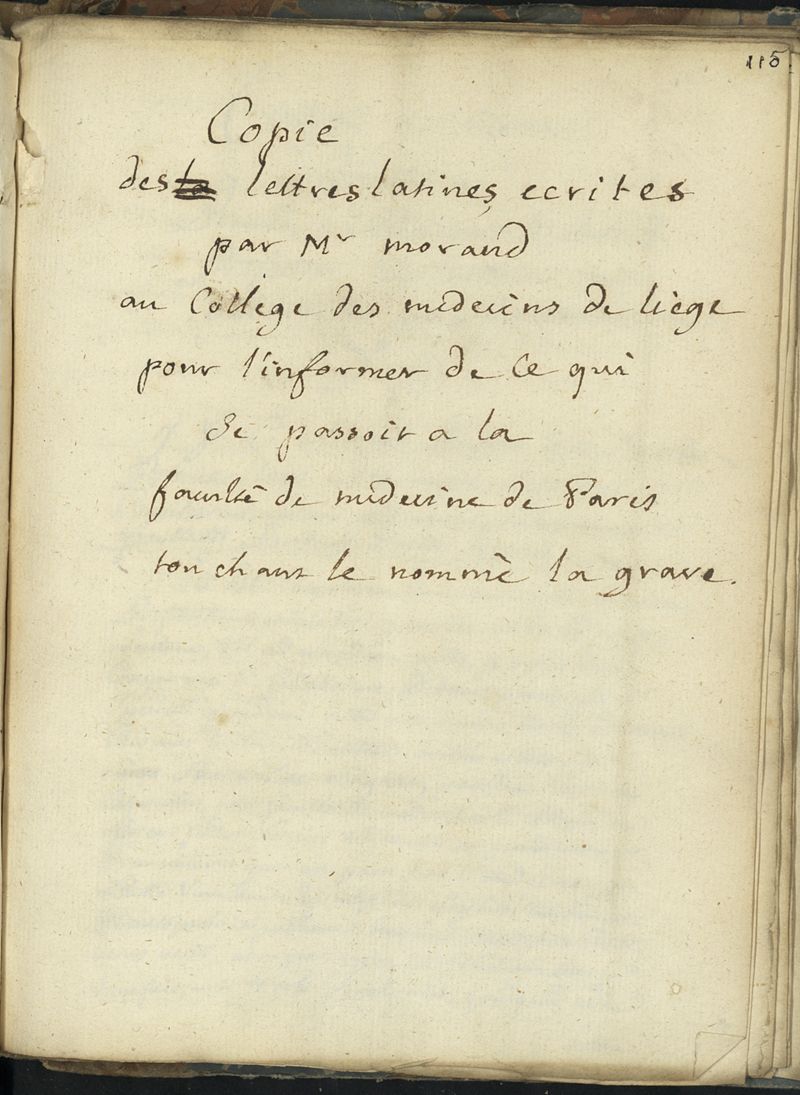 115
Copie
des lettres latines ecrites
par Mr morand
au College des medecins de liège
pour l'informer de Ce qui
Se passoit a la
faculté de medecine de Paris
touchant le nommé la grave.